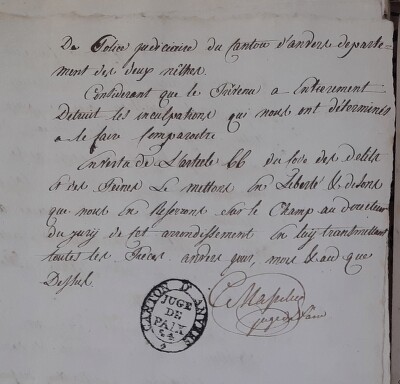 De Police judiciaire du Canton d'anvers departe=
ment des deux nêthes.
Considerant que le Prévenu a Entierement
Detruit les inculpations qui nous ont déterminés
a le faire Comparoitre
En vertu de L'article 66 du Code des delits
& des Peines Le mettons En Liberté & disons
que nous En Refererons sur le Champ au directeur
du jury de cet arrondissement En luy transmettant
toutes les Pièces. anvers jour, mois & an que
Dessus.
CANTON D'ANVERS
JUGE
DE
PAIX
juge de Paix